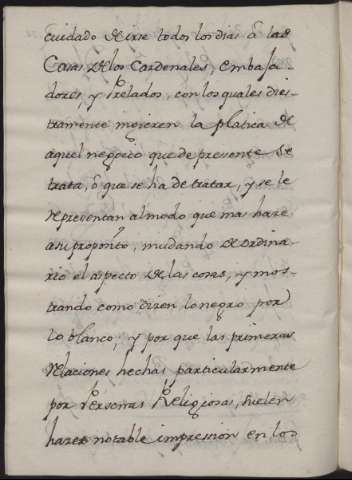 cuidado de irse todos los dias â las
Casas de los Cardenales, embaja-
dores, y Prelados, con los quales dies-
tramente mojeren la platica de
aquel negocio que de presente se
trata, ô que se ha de tratar, y se le
representan al modo que mas haze
asu proposito, mudando de ordina-
rio el aspecto de las cosas, y mos-
trando como dizen lo negro por
lo blanco, y por que las primeras
relaciones hechas particularmente
por Personas Religiosas, suelen
hazer notable impression en los